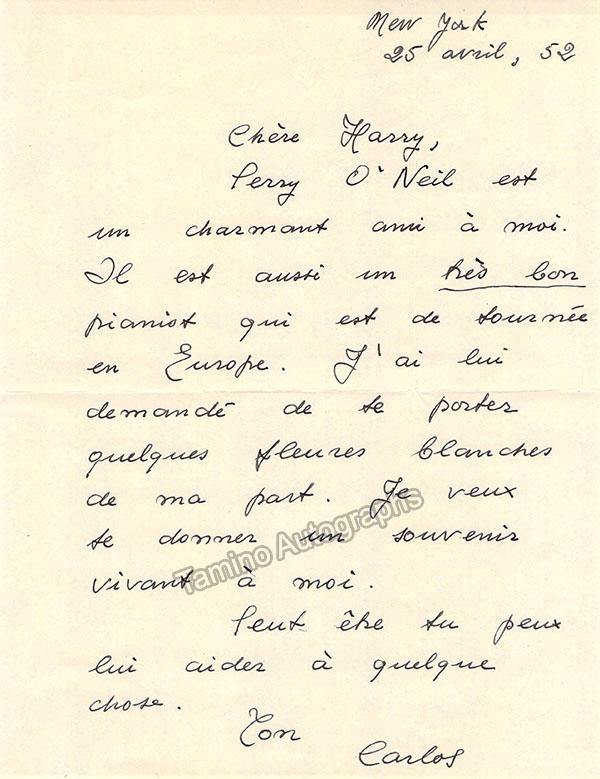 New York
25 avril, 52
Chère Harry,
Perry O'Neil est
un charmant ami à moi.
Il est aussi un très bon
pianist qui est de tournée
en Europe. J'ai lui
demandé de te porter
quelques fleures blanches
de ma part. Je veux
te donner un souvenir
vivant à moi.
Peut être tu peux
lui aider à quelque
chose.
Ton
Carlos
Tamino Autographs